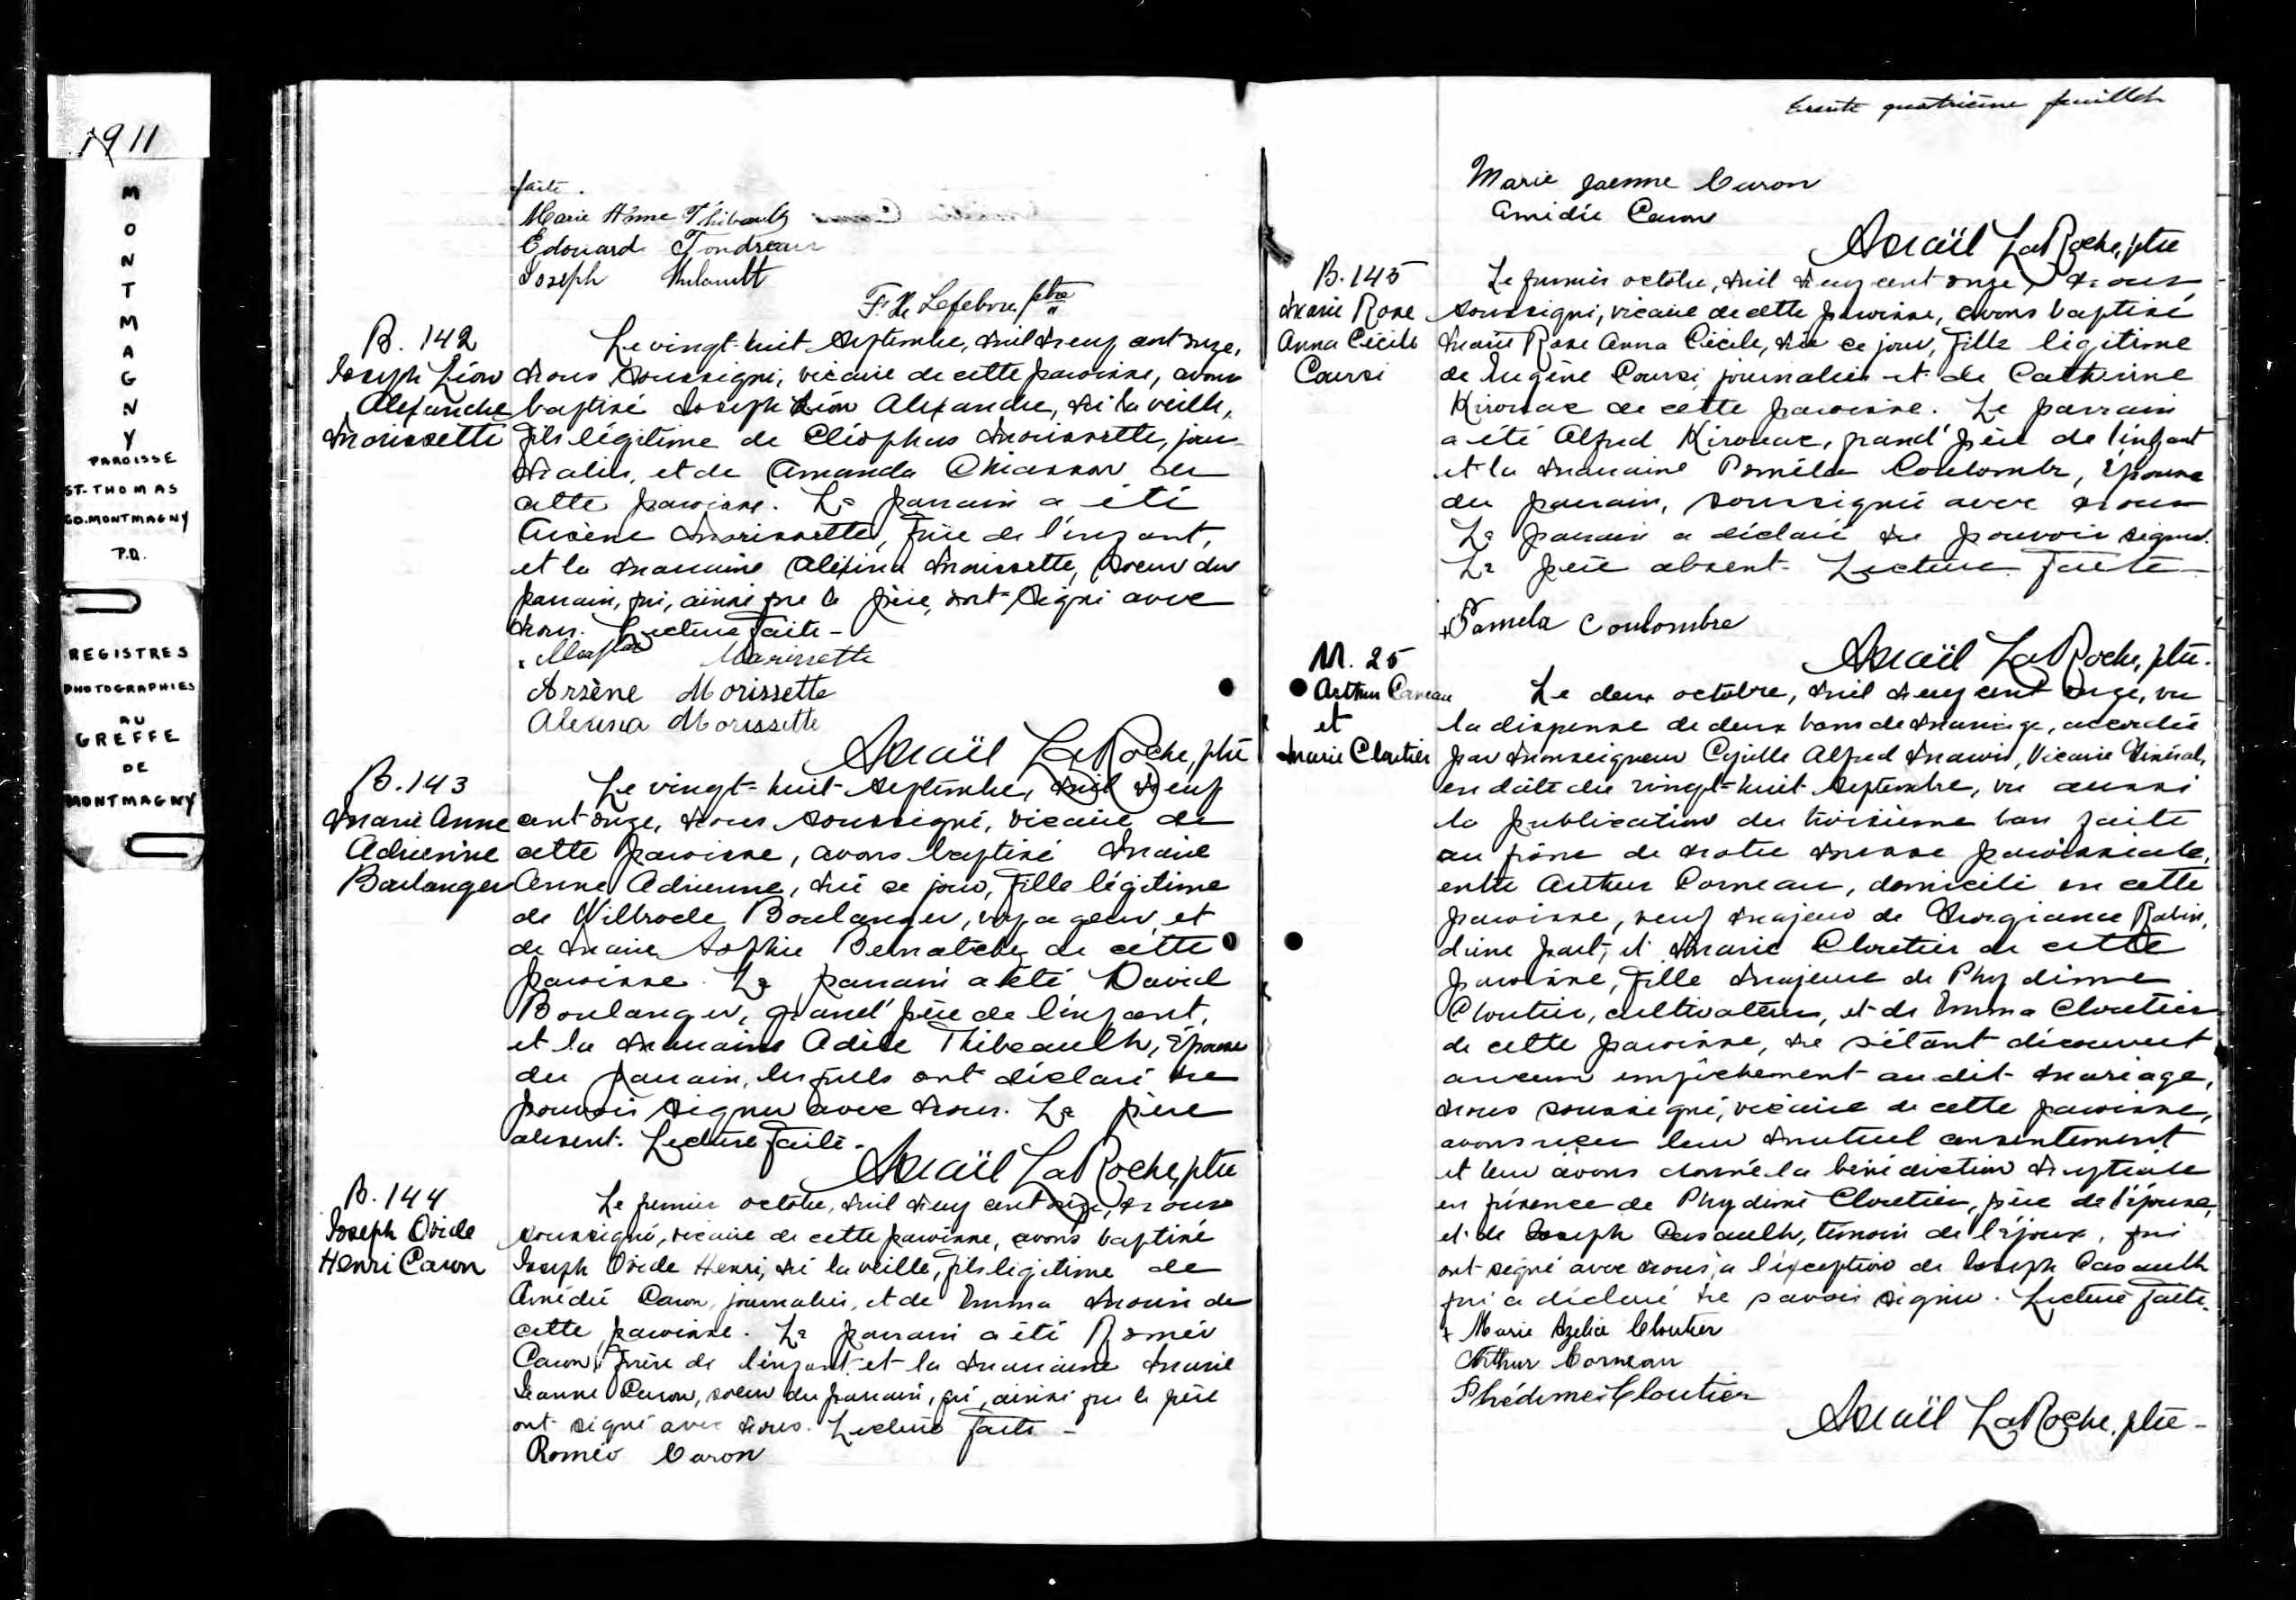 1911
MONTMAGNY
PAROISSE
ST-THOMAS
CO. MONTMAGNY
P.Q.
REGISTRES
PHOTOGRAPHIES
AU
GREFFE
DE
MONTMAGNY
faite.
Marie Anne Thibault
Edouard Fondreau
Joseph Thibault
F. X. Lefebvre ptre
B. 142
Joseph Léon
Alexandre
Morissette
Le vingt-huit septembre, mil neuf cent onze,
nous soussigné, vicaire de cette paroisse, avons
baptisé Joseph Léon Alexandre, né la veille,
fils légitime de Cléophas Morissette, jour
nalier, et de Amanda Chiasson de
cette paroisse. Le parrain a été
Arsène Morissette, frère de l'enfant,
et la marraine Alexina Morissette, soeur du
parrain, qui, ainsi que le père, ont signé avec
nous. Lecture faite -
Morissette
Arsène Morissette
Alexina Morissette
LaRoche, ptre
B. 143
Marie Anne
Adrienne
Boulanger
Le vingt-huit septembre, mil neuf
cent onze, nous soussigné, vicaire de
cette paroisse, avons baptisé Marie
Anne Adrienne, née ce jour, fille légitime
de Wilbrode Boulanger, voyageur, et
de Marie Sophie Bernatchez de cette
paroisse. Le parrain a été David
Boulanger, grand'père de l'enfant,
et la marraine Adèle Thibeault, épouse
du parrain, lesquels ont déclaré ne
pouvoir signer avec nous. Le père
absent. Lecture faite -
LaRoche, ptre
B. 144
Joseph Ovide
Henri Caron
Le premier octobre, mil neuf cent onze, nous
soussigné, vicaire de cette paroisse, avons baptisé
Joseph Ovide Henri, né la veille, fils légitime de
Amédée Caron, journalier, et de Emma Morin de
cette paroisse. Le parrain a été Roméo
Caron, frère de l'enfant et la marraine Marie
Jeanne Caron, soeur du parrain, qui, ainsi que le père
ont signé avec nous. Lecture faite -
Roméo Caron
trente quatrième feuillet
Marie Jaenne Caron
Amédée Caron
LaRoche, ptre
B. 145
Marie Rose
Anna Cécile
Coursi
Le premier octobre, mil neuf cent onze, nous
soussigné, vicaire de cette paroisse, avons baptisé
Marie Rose Anna Cécile, née ce jour, fille légitime
de Eugène Coursi, journalier et de Catherine
Kirouac de cette paroisse. Le parrain
a été Alfred Kirouac, grand'père de l'enfant
et la marraine Paméla Coulombe, épouse
du parrain, soussignée avec nous
Le parrain a déclaré ne pouvoir signer.
Le père absent. Lecture faite -
Pamela Coulombre
LaRoche, ptre.
M. 25
Arthur Corneau
et
Marie Cloutier
Le deux octobre, mil neuf cent onze, vu
la dispense de deux bans de mariage, accordée
par Monseigneur Cyrille Alfred Marois, Vicaire Général,
en date du vingt-huit septembre, vu aussi
la publication du troisième ban faite
au prône de notre messe paroissiale,
entre Arthur Corneau, domicilié en cette
paroisse, veuf majeur de Georgianna Robin,
d'une part, et Marie Cloutier de cette
paroisse, fille majeure de Phydime
Cloutier, cultivateur, et de Emma Cloutier
de cette paroisse, ne s'étant découvert
aucun empêchement au dit mariage,
nous soussigné, vicaire de cette paroisse,
avons reçu leur mutuel consentement
et leur avons donné la bénédiction nuptiale
en présence de Phydime Cloutier, père de l'épouse,
et de Joseph Casault, témoin de l'époux, qui
ont signé avec nous, à l'exception de Joseph Casault
qui a déclaré ne savoir signer. Lecture faite.
+ Marie Azelia Cloutier
Arthur Corneau
Phédime Cloutier
LaRoche, ptre -